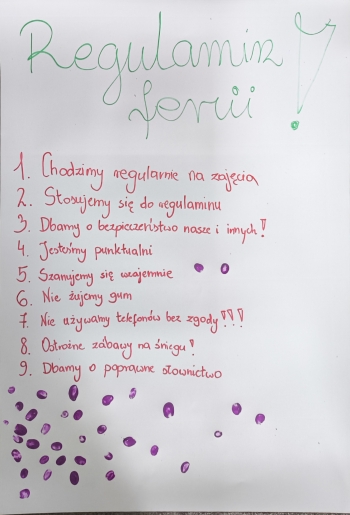 Regulamin
ferii !
1. Chodzimy regularnie na zajęcia
2. Stosujemy się do regulaminu
3. Dbamy o bezpieczeństwo nasze i innych!
4. Jesteśmy punktualni
5. Szanujemy się wzajemnie
6. Nie żujemy gum
7. Nie używamy telefonów bez zgody!!!
8. Ostrożne zabawy na śniegu!
9. Dbamy o poprawne słownictwo